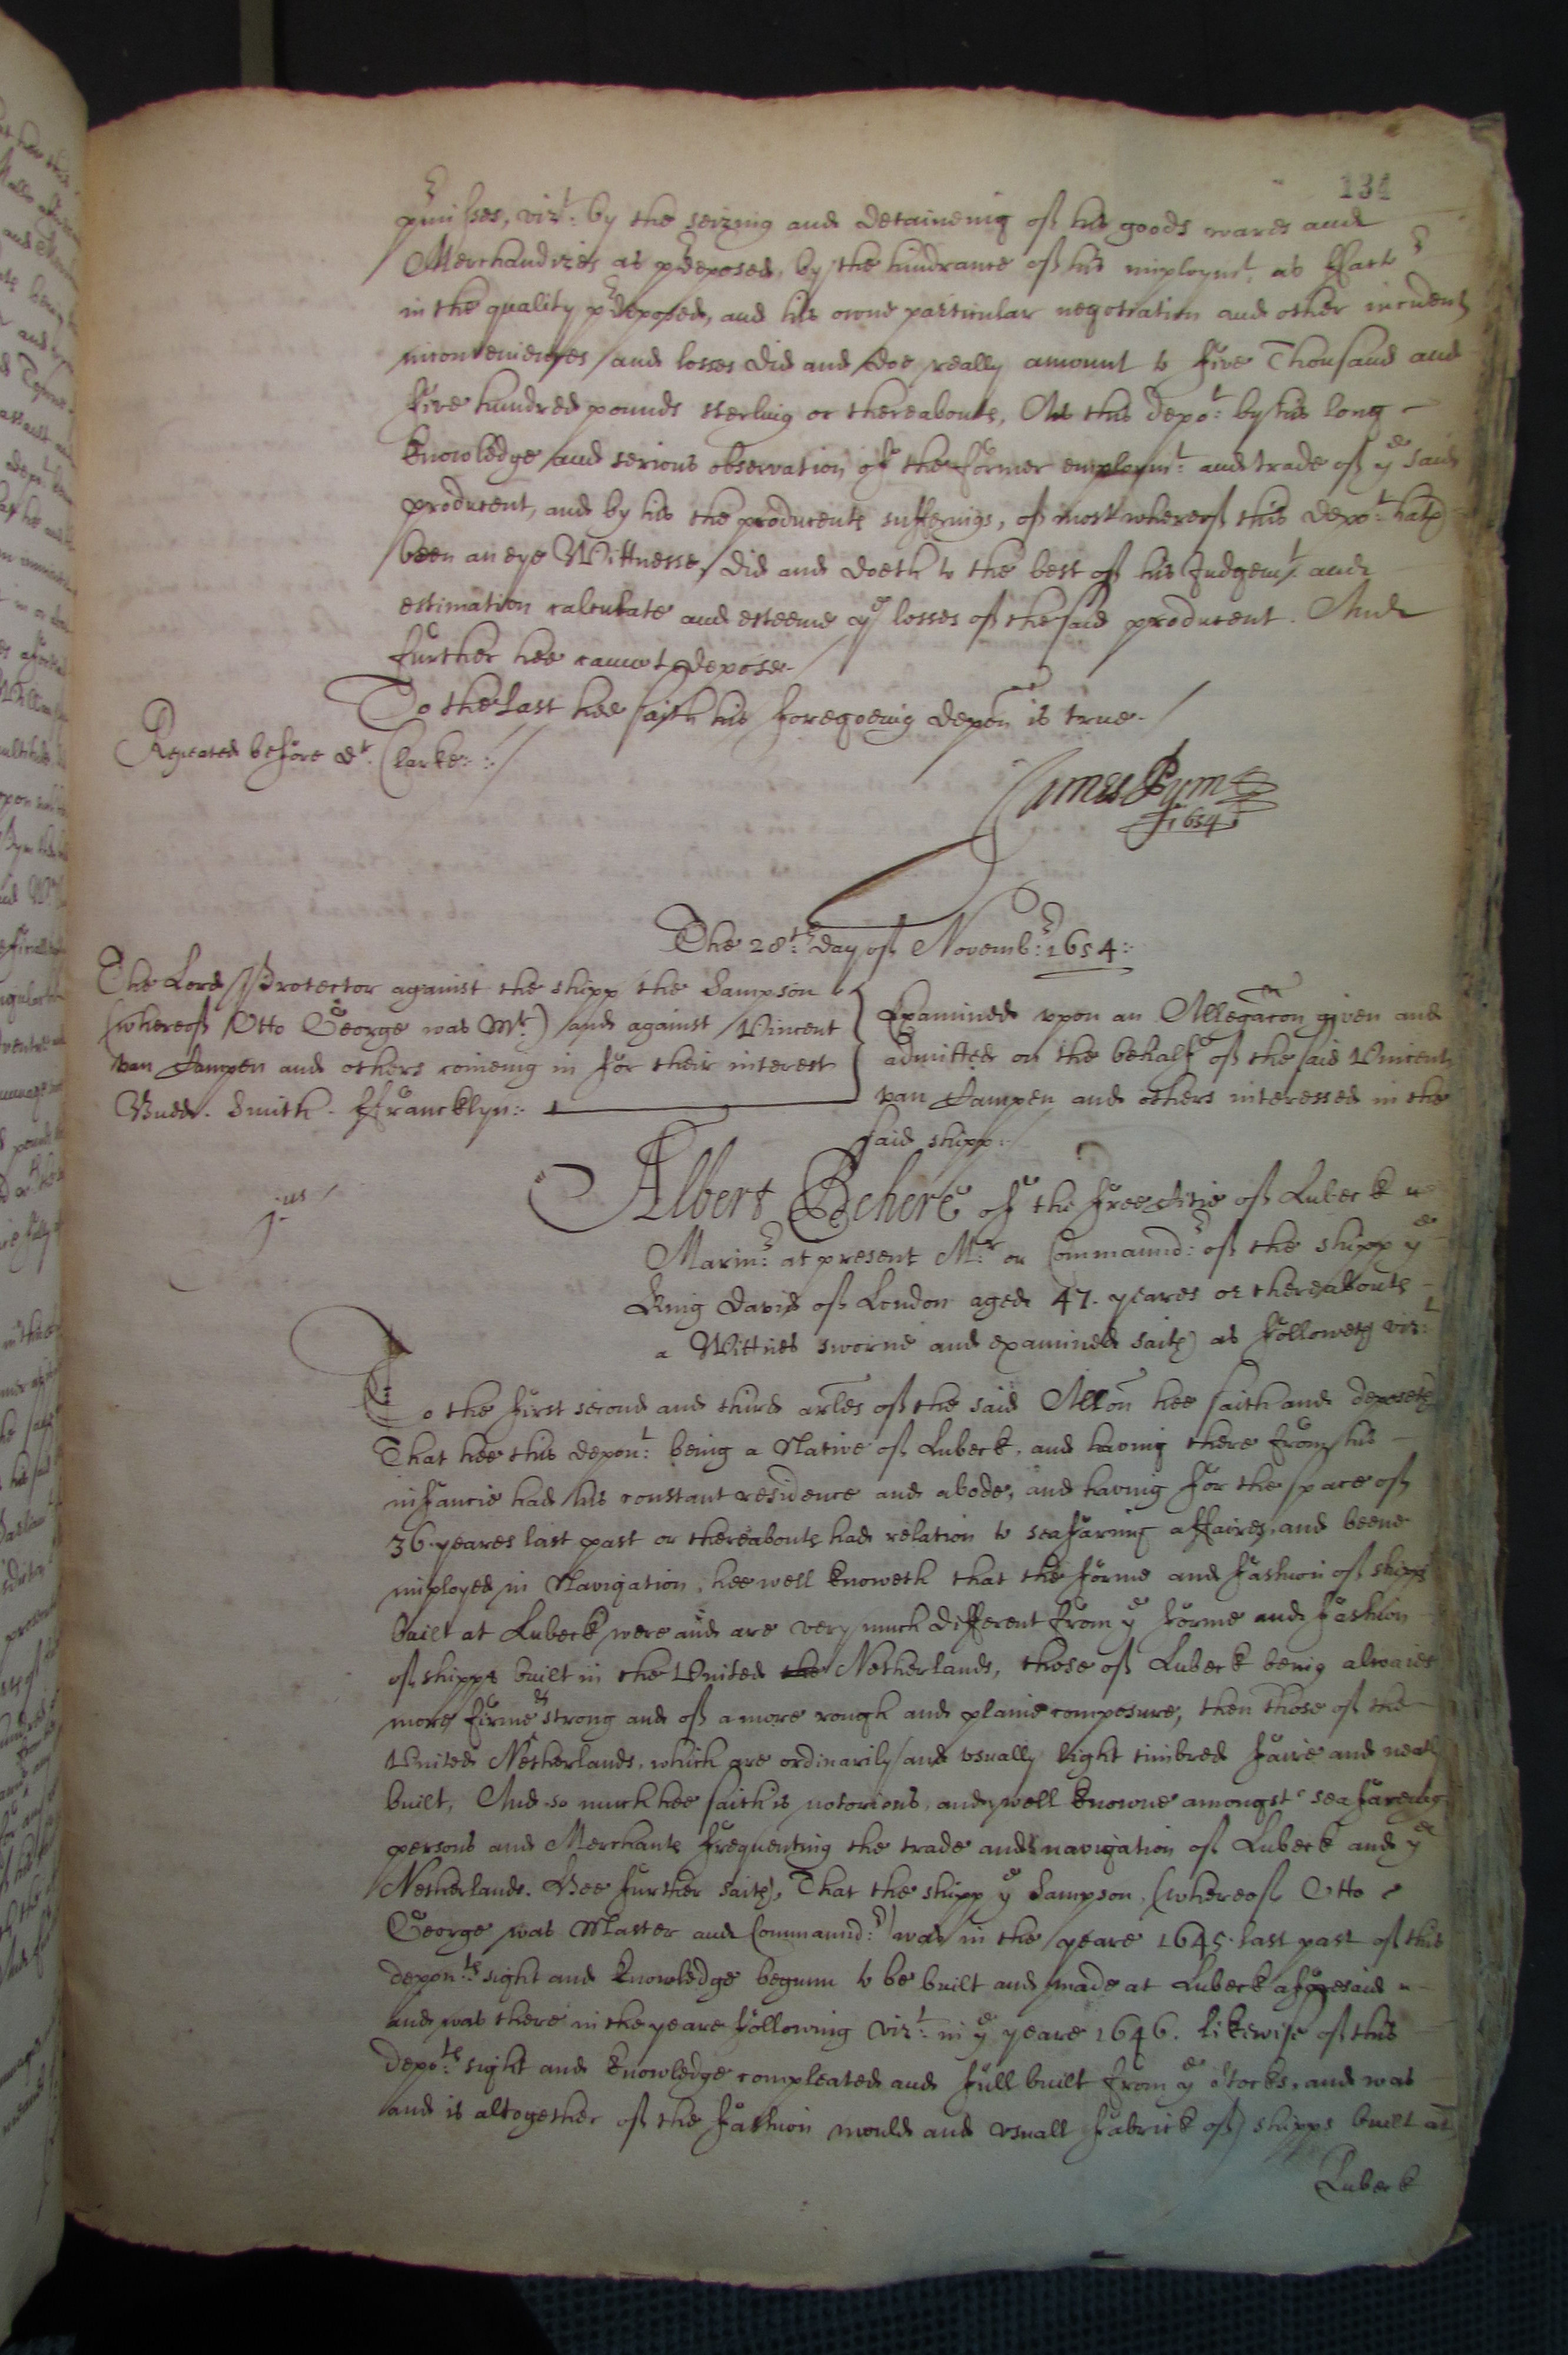 134
pmisses, vizt. by the seizing and detaineing of his goods wares and
Merchandizes as pdeposed, by the hindrance of his imploymt. as ffactr
in the quality pdeposed, and his owne particular negotiation and other incident
inconveniences and losses did and doe really amount to five Thousand and
five hundred pounds sterling or thereabouts, As this depot. by his long
knowledge and serious observation of the former employmt. and trade of ye said
producent, and by his the producents sufferings, of most whereof this depot. hath
been an eye Wittnesse, did and doeth to the best of his Judgemt. and
estimation calculate and esteeme ye losses of the said producent. And
further hee cannot depose.
To the last hee saith his foregoeing depon is true.
Repeated before dr. Clarke.
James Pym
1654
The 28th. day of Novembr. 1654.
The Lord Protector against the shipp the Sampson
(whereof Otto George was Mr.) and against Vincent
van Campen and others comeing in for their interest
Budd. Smith. ffrancklyn.
Examined upon an Allegacon given and
admitted on the behalf of the said Vincent
van Campen and others interessed in the
said shipp.
jus
Albert Behere of the free Citie of Lubeck
Marinr. at present Mr. or Commaundr. of the shipp ye
King David of London aged 47. yeares or thereabouts
a Wittnes sworne and examined saith as followeth vizt.
To the first second and third arles of the said Allon hee saith and deposeth
That hee this depont. being a Native of Lubeck, and having there from his
infancie had his constant residence and abode, and having for the space of
36. yeares last past or thereabouts had relation to seafaring affaires, and beene
imployed in Navigation, hee well knoweth that the forme and fashion of shipps
built at Lubeck were and are very much different from ye forme and fashion
of shipps built in the United the Netherlands, those of Lubeck being alwaies
more firme & strong and of a more rough and plaine composure, then those of the
United Netherlands, which are ordinarily and usually light timbred faire and neat
built, And so much hee saith is notorious, and well knowne amongst seafareing
persons and Merchants frequenting the trade and navigation of Lubeck and ye
Netherlands. Hee further saith, That the shipp ye Sampson, (whereof Otto
George was Master and Commaundr.) was in the yeare 1645. last past of this
deponts. sight and knowledge begunn to be built and made at Lubeck aforesaid
and was there in the yeare following vizt. in ye yeare 1646. likewise of this
depots. sight and knowledge compleated and full built from ye stocks, and was
and is altogether of the fashion mould and usuall fabrick of shipps built at
Lubeck